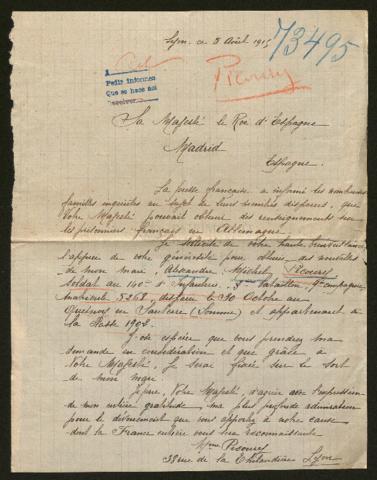 Lyon, ce 8 Août 1915
73495
A
Pedir informes
Que se hace así
Recoury
Sa Majesté le Roi d'Espagne
Madrid
Espagne.
La presse française a informé les nombreuses
familles inquiètes au sujet de leurs parents disparus, que
Votre Majesté pouvait obtenir des renseignements sur
les prisonniers français en Allemagne.
Je sollicite de votre haute bienveillance
l'appui de votre générosité pour obtenir des nouvelles
de mon mari, Alexandre, Michel,
soldat au 140e d'Infanterie, Bataillon, 9e compagnie,
matricule disparu le 30 Octobre au
Quesnoy en Santerre (Somme) et appartenant à
la classe 1902.
J'ose espérer que vous prendrez ma
demande en considération et que grâce à
Votre Majesté, je serai fixée sur le sort
de mon mari.
Je prie, Votre Majesté, d'agréer avec l'expression
de mon entière gratitude, ma plus profonde admiration
pour le dévouement que vous apportez à notre cause
dont la France entière vous sera reconnaissante.
Mme
38 rue de la Thibaudière Lyon